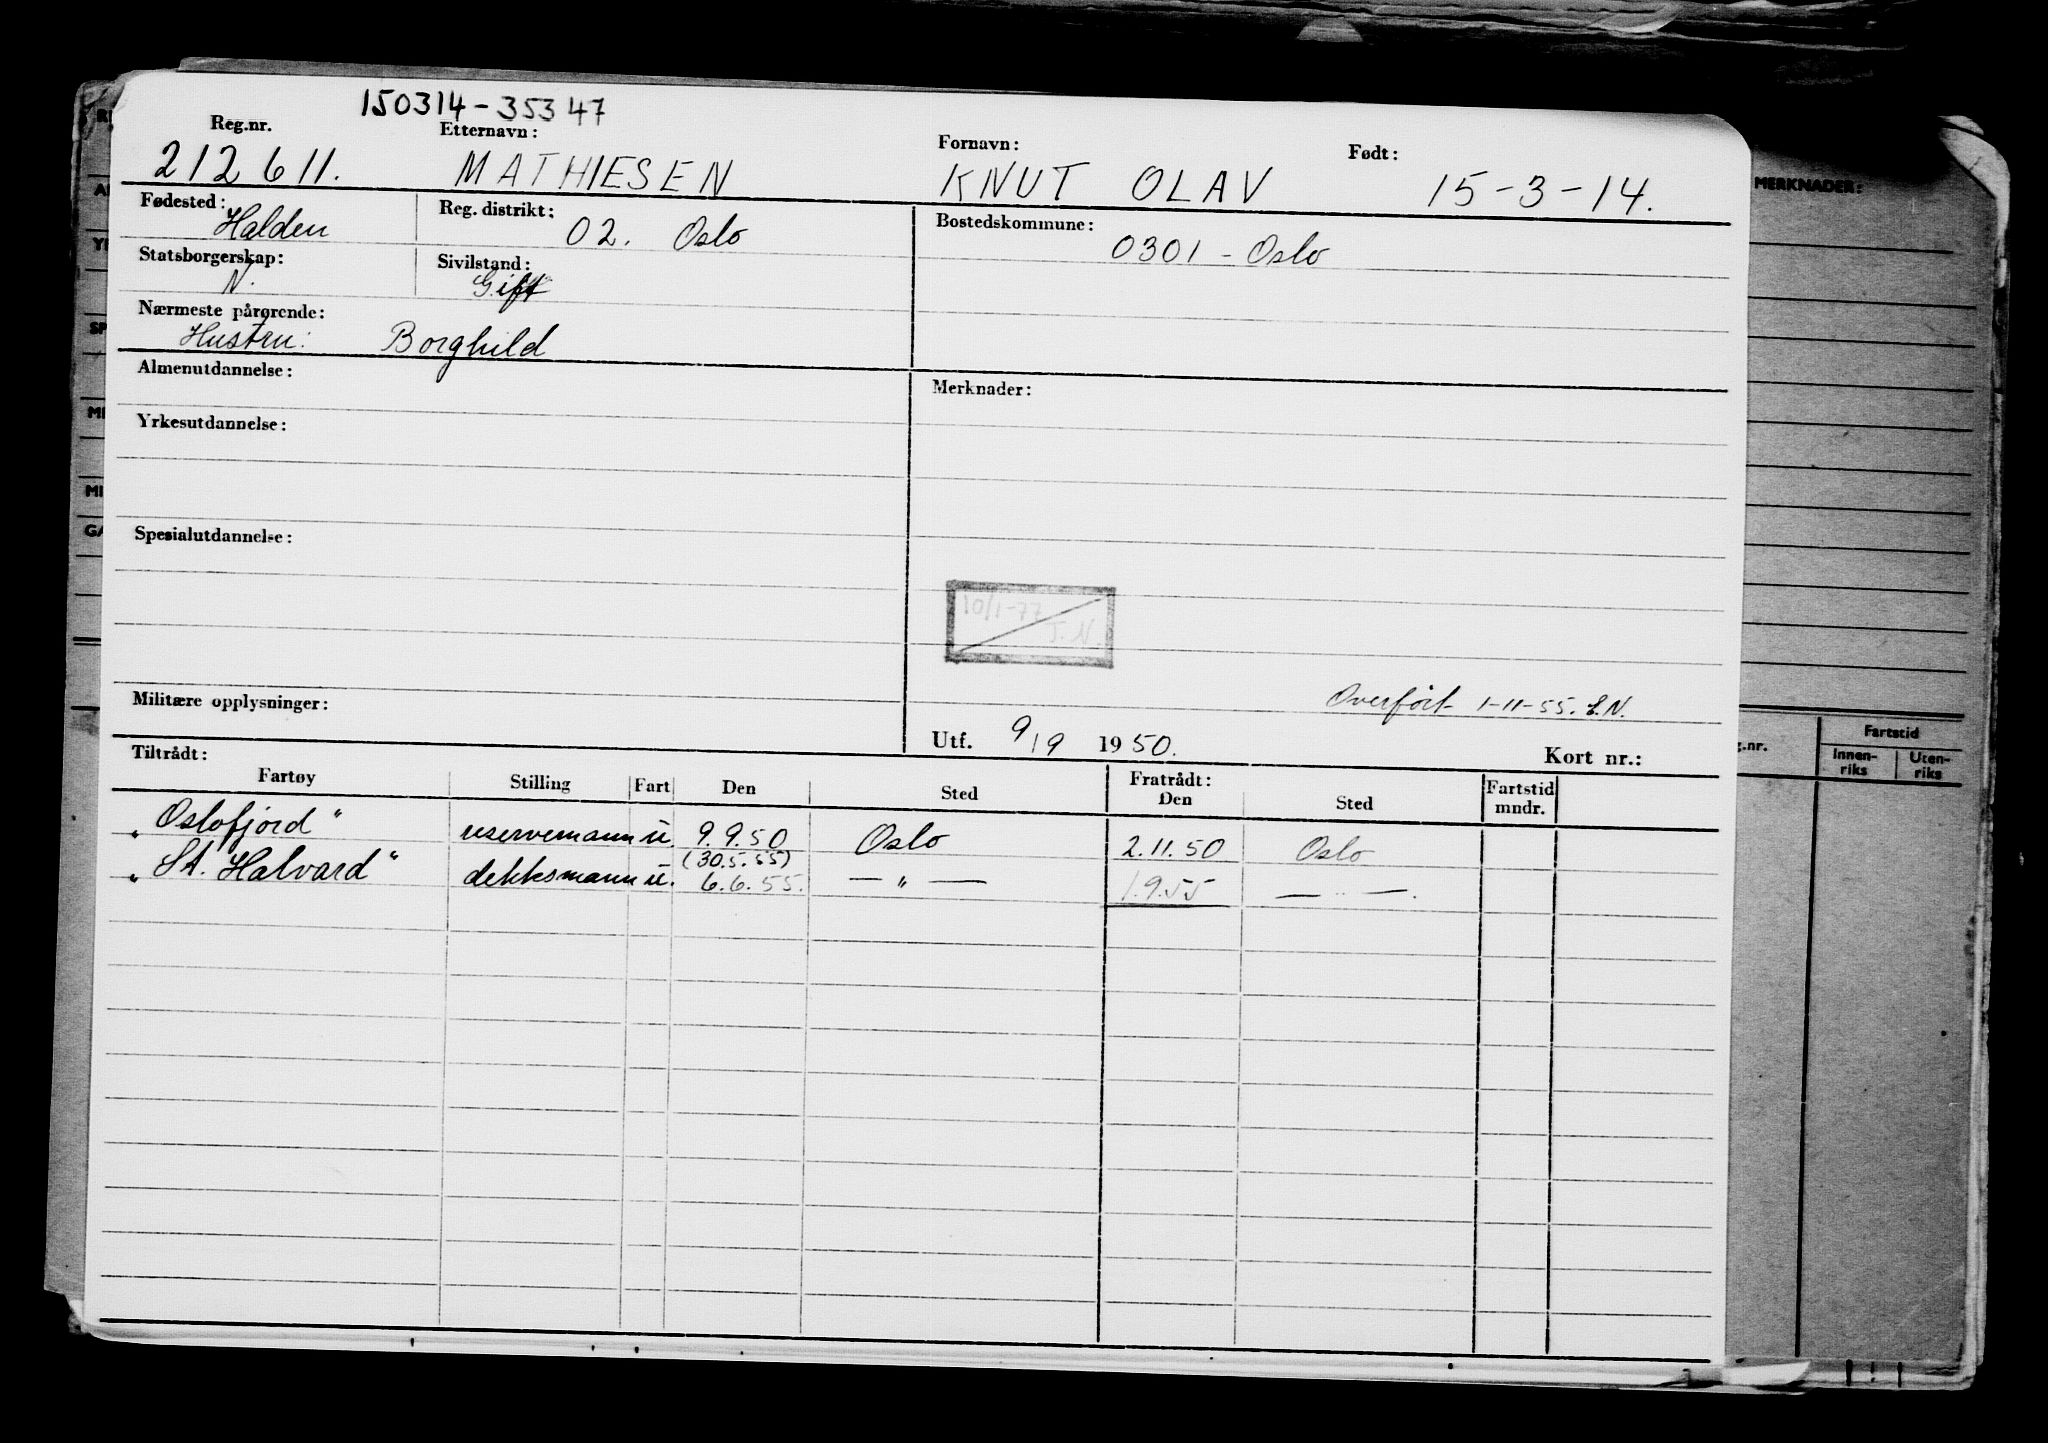 150314-35347
Reg.nr. Etternavn: Fornavn: Født:
212611. MATHIESEN KNUT OLAV 15-3-14.
Fødested: Reg. distrikt: Bostedskommune:
Halden 02. Oslo 0301 - Oslo
Statsborgerskap: Sivilstand:
N. Gift
Nærmeste pårørende:
Hustru: Borghild
Almenutdannelse: Merknader:
Yrkesutdannelse:
Spesialutdannelse:
10/1-77
J.N.
Militære opplysninger: Overført 1-11-55. E.N.
Utf. 9/9 1950. Kort nr.:
Tiltrådt: Fratrådt:
Fartøy Stilling Fart Den Sted Den Sted Fartstid mndr.
"Oslofjord" reservemann u. 9.9.50 Oslo 2.11.50 Oslo
(30.5.55)
"St. Halvard" dekksmann u. 6.6.55. — " — 1.9.55 — " —.
MERKNADER:
g.nr. Fartstid
Innen-riks Uten-riks